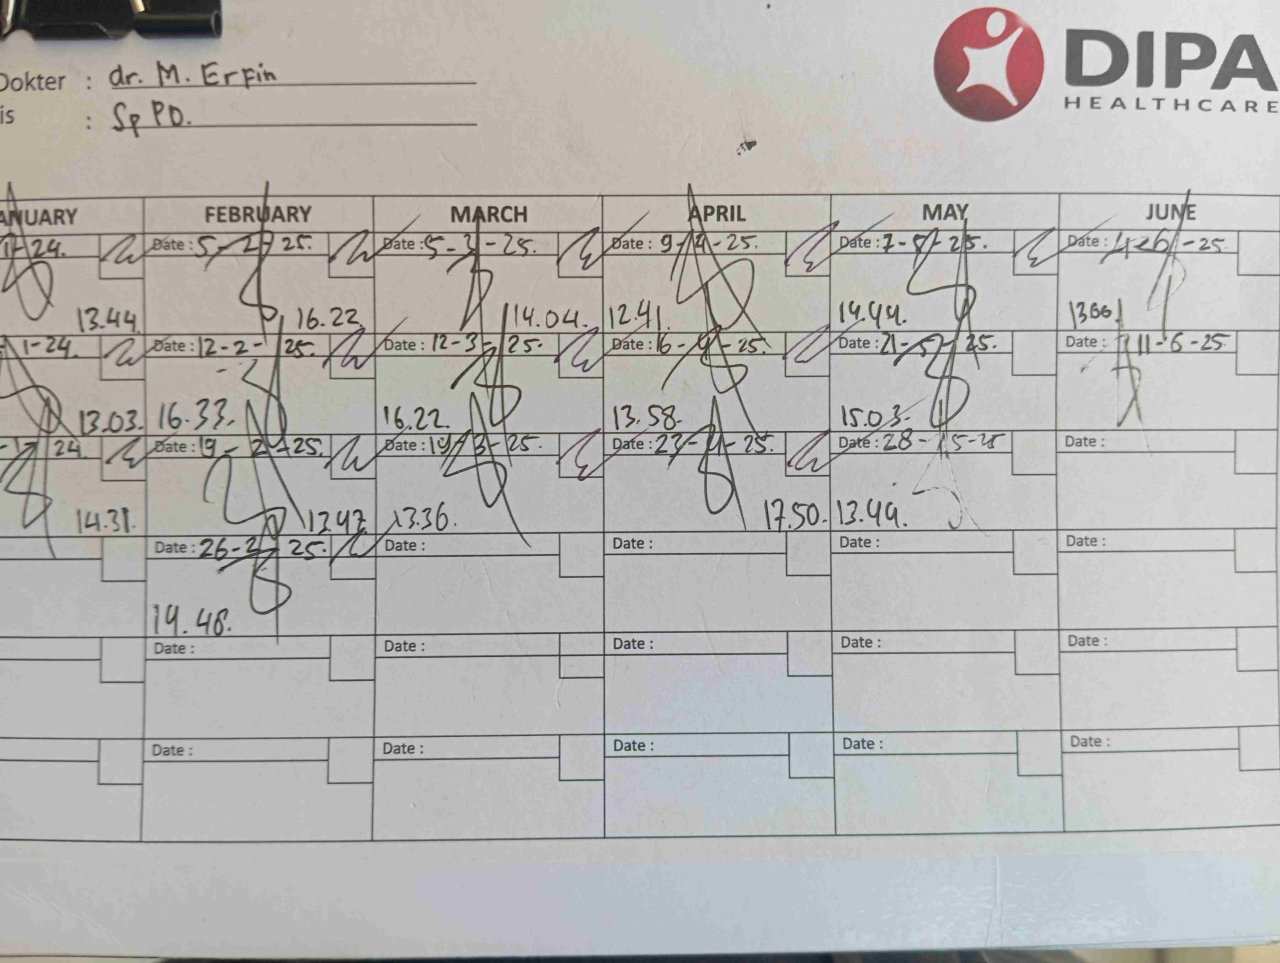 Dokter : dr. M. Erfin
is : Sp PD.
DIPA
HEALTHCARE
ANUARY FEBRUARY MARCH APRIL MAY JUNE
1-24. Date : 5-2-25. Date : 5-3-25. Date : 9-4-25. Date : 7-5-25. Date : 4-6-25
13.44. 16.22 14.04. 12.41. 14.44.
1-24. Date : 12-2-25. Date : 12-3-25. Date : 16-4-25. Date : 21-5-25. Date : 11-6-25
13.03. 16.33. 16.22. 13.58. 15.03.
24. Date : 19-2-25. Date : 19-3-25. Date : 23-4-25. Date : 28-5-25 Date :
14.31. 13.47 13.36. 17.50. 13.49.
Date : 26-2-25. Date : Date : Date : Date :
14.48.
Date : Date : Date : Date : Date :
Date : Date : Date : Date : Date :